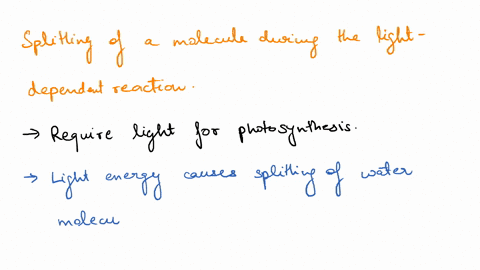 Splitting of a molecule during the light-
dependent reaction.
→ Require light for photosynthesis.
→ Light energy causes splitting of water
molecu